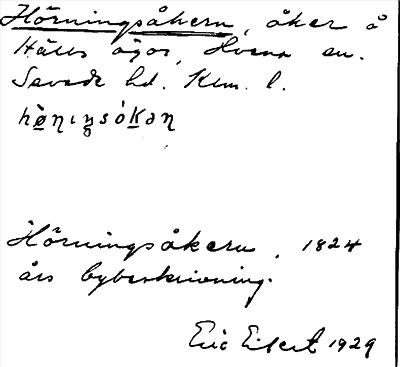 Hörningsåkern, åker å
Hälls ägor, Hvena sn.
Sevede hd. Klm. l.
Hörningsåkern, 1824
års bybeskrivning.
Eric Elgert 1929